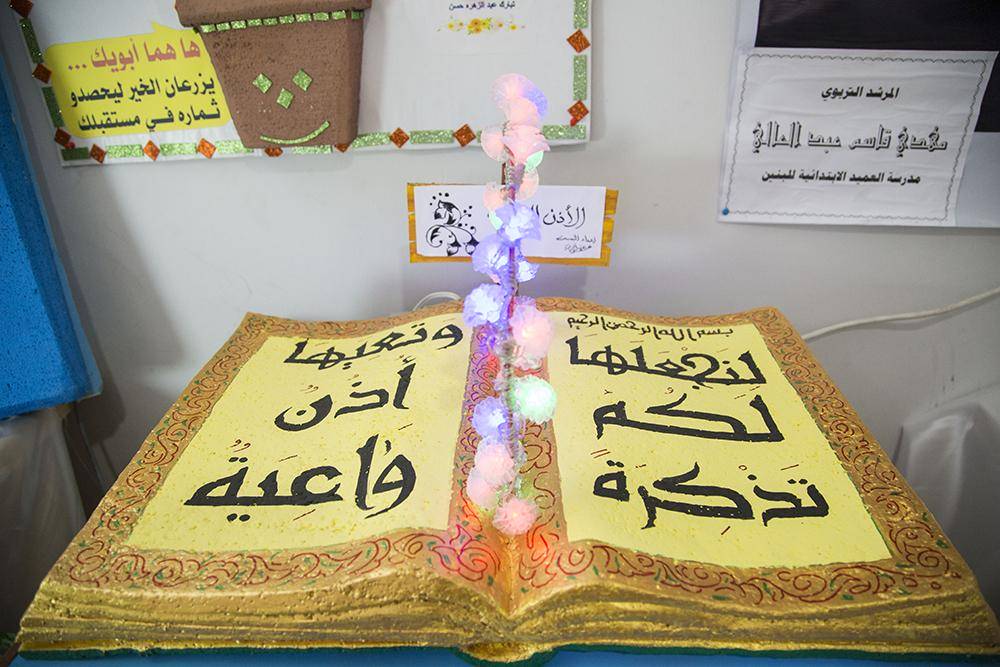 تبارك عبد الزهره حسن
ها هما أبويك ...
يزرعان الخير ليحصدو
ثماره في مستقبلك
المرشد التربوي
مهدي قاسم عبد العالي
مدرسة العميد الابتدائية للبنين
الأذن
بسم الله الرحمن الرحيم
لنجعلها
لكم
تذكرة
وتعيها
أذن
واعية